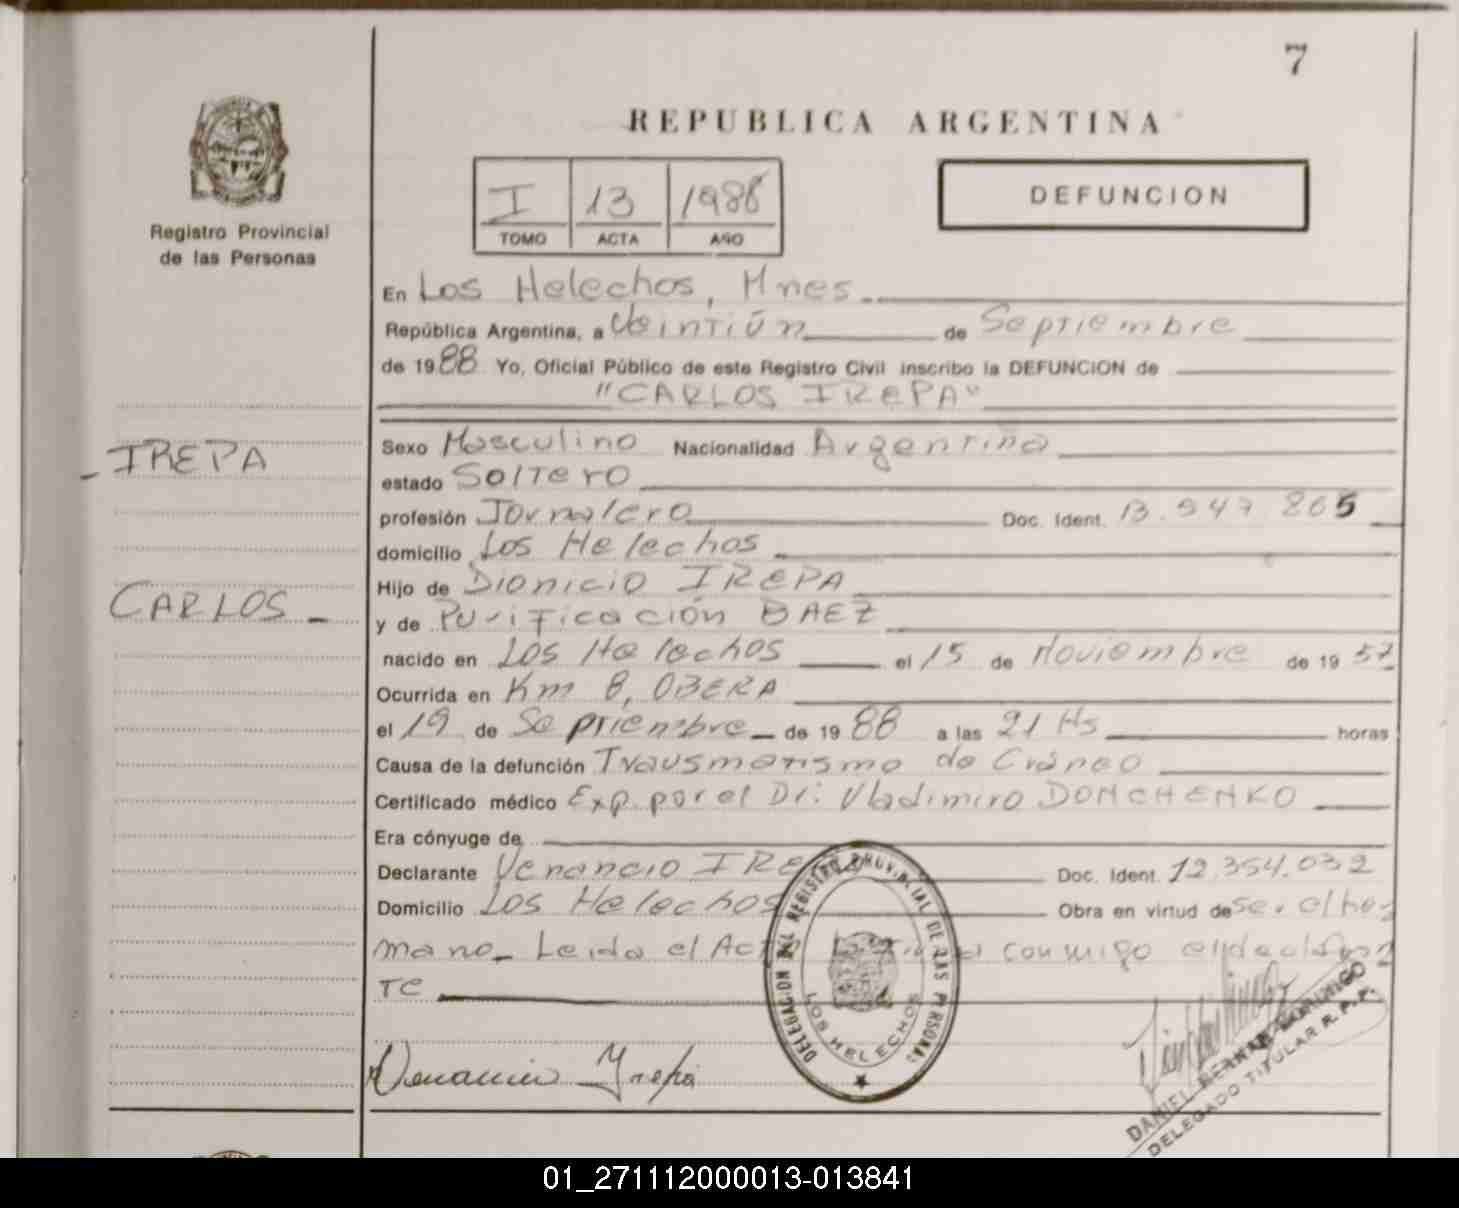 7
REPUBLICA ARGENTINA
I 13 1988
TOMO ACTA AÑO
DEFUNCION
Registro Provincial
de las Personas
En Los Helechos, Mnes
República Argentina, a Veintiún de Septiembre
de 1988 Yo, Oficial Público de este Registro Civil inscribo la DEFUNCION de
"CARLOS IREPA"
IREPA
CARLOS
Sexo Masculino Nacionalidad Argentina
estado Soltero
profesión Jornalero Doc. Ident. 13.947.865
domicilio Los Helechos
Hijo de Dionicio IREPA
y de Purificación BAEZ
nacido en Los Helechos el 15 de Noviembre de 1957
Ocurrida en Km 8, OBERA
el 19 de Septiembre de 1988 a las 21 Hs horas
Causa de la defunción Trausmatismo de Cráneo
Certificado médico Exp. por el Dr. Vladimiro DONCHENKO
Era cónyuge de
Declarante Venancio Doc. Ident. 12.354.032
Domicilio Los Helechos Obra en virtud de ser el her
mano_ Leida el conmigo el declaran
te
Venancio Yrepa
DELEGACION DEL REGISTRO PROVINCIAL DE LAS PERSONAS
LOS HELECHOS
DANIEL
DELEGADO TITULAR R. P. P.
01_271112000013-013841